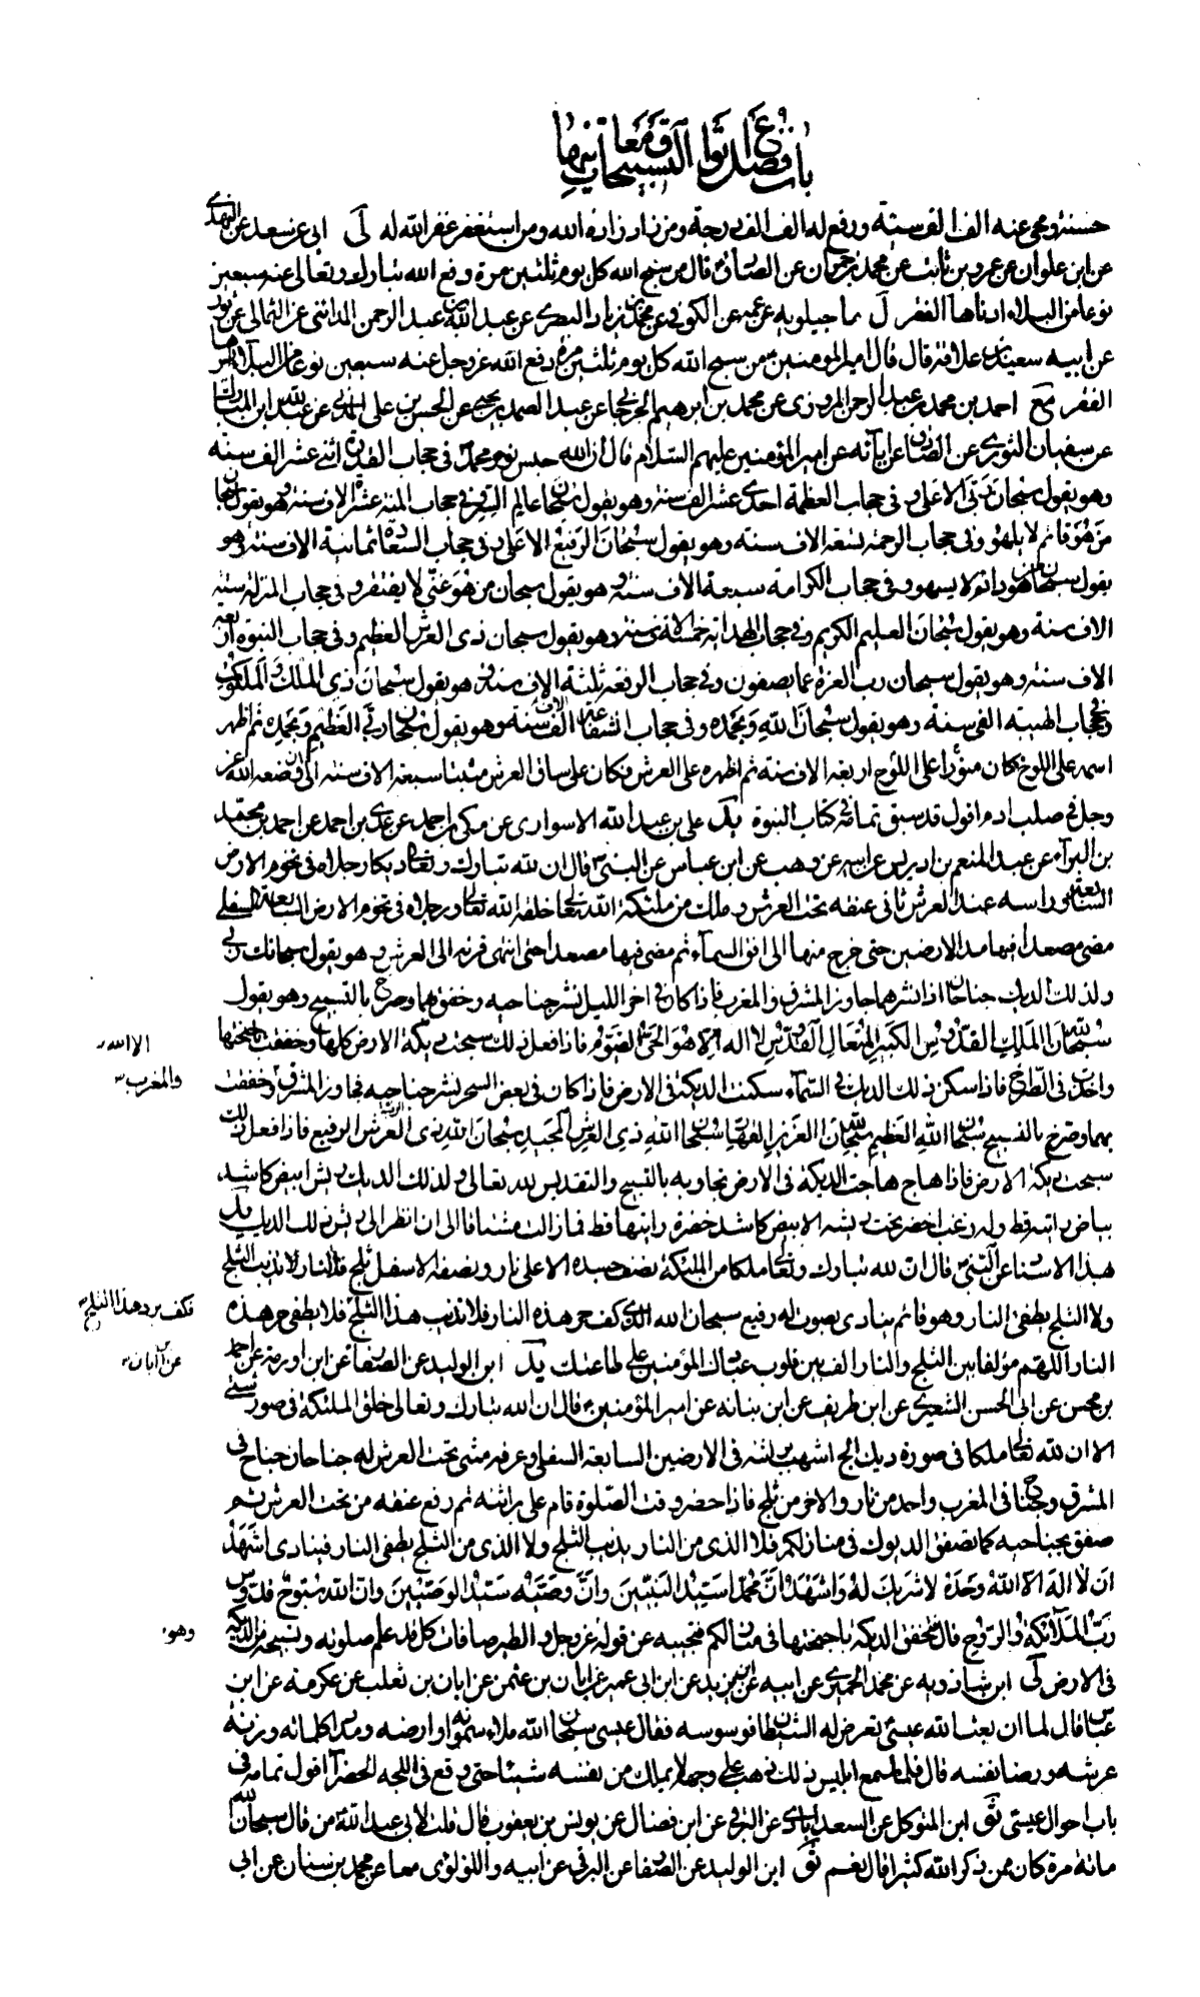 باب فضل التسبيحات الاربع ومعانيها وثوابها
حسنة ومحى عنه الف الف سيئة ورفع له الف الف درجة ومن زاد زاده الله ومن استغفر غفر الله له لى ابى عن سعد عن النهدى
عن ابن علوان عن عمرو بن ثابت عن محمد بن حمران عن الصادق قال من سبح الله كل يوم ثلثين مرة دفع الله تبارك وتعالى عنه سبعين
نوعا من البلاء ادناها الفقر ل ما جيلويه عن عمه عن الكوفى عن محمد بن زياد البصرى عن عبد الله بن عبد الرحمن المدائنى عن الثمالى عن ثور
عن ابيه سعيد بن علاقة قال قال امير المومنين من سبح الله كل يوم ثلثين مرة دفع الله عز وجل عنه سبعين نوعا من البلاء
الفقر مع احمد بن محمد بن عبد الرحمن المروزى عن محمد بن ابرهيم الجرجانى عن عبد الصمد بن يحيى عن الحسن بن على المدنى عن عبد الله ابن المبارك
عن سفيان الثورى عن الصادق عن ابائه عن امير المؤمنين عليهم السلام قال ان الله حبس نور محمد فى حجاب القدرة اثنى عشر الف سنة
وهو يقول سبحان ربى الاعلى وفى حجاب العظمة احدى عشر الف سنة وهو يقول سبحان عالم السر وفى حجاب المنة عشرة الاف سنة وهو يقول سبحان
من هو قائم لا يلهو وفى حجاب الرحمة تسعة الاف سنة وهو يقول سبحان الرفيع الاعلى وفى حجاب السعادة ثمانية الاف سنة وهو
يقول سبحان من هو دائم لا يسهو وفى حجاب الكرامة سبعة الاف سنة وهو يقول سبحان من هو غنى لا يفتقر وفى حجاب المنزلة ستة
الاف سنة وهو يقول سبحان العليم الكريم وفى حجاب الهداية خمسة الاف سنة وهو يقول سبحان ذى العرش العظيم وفى حجاب النبوة اربعة
الاف سنة وهو يقول سبحان رب العزة عما يصفون وفى حجاب الرفعة ثلثة الاف سنة وهو يقول سبحان ذى الملك والملكوت
وفى حجاب الهيبة الفى سنة وهو يقول سبحان الله وبحمده وفى حجاب الشفاعة الف سنة وهو يقول سبحان ربى العظيم وبحمده ثم اظهر
اسمه على اللوح فكان منورا على اللوح اربعة الاف سنة ثم اظهره على العرش فكان على ساق العرش مثبتا سبعة الاف سنة الى ان وضعه الله عز
وجل فى صلب ادم اقول قد سبق تمامه فى كتاب النبوة يد على بن عبد الله الاسوارى عن مكى بن احمد عن عدى بن احمد عن احمد بن محمد
بن البراء عن عبد المنعم بن ادريس عن ابيه عن وهب عن ابن عباس عن النبى قال ان لله تبارك وتعالى ديكا رجلاه فى تخوم الارض
السابعة وراسه عند العرش ثانى عنقه تحت العرش وملك من ملئكة الله تعالى خلقه الله تعالى ورجلاه فى تخوم الارض السابعة السفلى
مضى مصعدا فيها مد الارضين حتى خرج منها الى افق السماء ثم مضى فيها مصعدا حتى انتهى قرنه الى العرش وهو يقول سبحانك ربى
ولذلك الديك جناحان اذا نشرهما جاوزا المشرق والمغرب فاذا كان فى اخر الليل نشر جناحيه وخفق بهما وصرخ بالتسبيح وهو يقول
سبحان الله الملك القدوس الكبير المتعال القدوس لا اله الا هو الحى القيوم فاذا فعل ذلك سبحت ديكة الارض كلها وخفقت باجنحتها
الا الله
واخذت فى الصراخ فاذا سكن ذلك الديك فى السماء سكنت الديكة فى الارض فاذا كان فى بعض السحر نشر جناحيه فجاوزا المشرق وخفقت
والمغرب
بهما وصرخ بالتسبيح سبحان الله العظيم سبحان الله العزيز القهار سبحان الله ذى العرش المجيد سبحان الله ذى العرش الرفيع فاذا فعل ذلك
سبحت ديكة الارض فاذا هاج هاجت الديكة فى الارض تجاوبه بالتسبيح والتقديس لله تعالى ولذلك الديك ريش ابيض كاشد
بياض رايته قط وله زغب اخضر تحت ريشه الابيض كاشد خضرة رايتها قط فما زلت مشتاقا الى ان انظر الى ريش ذلك الديك يد
بهذا الاسناد عن النبى قال ان لله تبارك وتعالى ملكا من الملئكة نصف جسده الاعلى نار ونصفه الاسفل ثلج فلا النار تذيب الثلج
ولا الثلج يطفى النار وهو قائم ينادى بصوت له رفيع سبحان الله الذى كف حر هذه النار فلا تذيب هذا الثلج فلا يطفى حر هذه
وكف برد هذا الثلج
النار اللهم مؤلفا بين الثلج والنار الف بين قلوب عبادك المؤمنين على طاعتك يد ابن الوليد عن الصفار عن ابن اورمة عن احمد
عن ابان
بن محسن عن ابى الحسن الشعيرى عن ابن طريف عن ابن نباته عن امير المؤمنين قال ان لله تبارك وتعالى خلق الملئكة فى صور شتى
الا ان لله تعالى ملكا فى صورة ديك ابح اشهب براثنه فى الارضين السابعة السفلى وعرفه مثنى تحت العرش له جناحان جناح فى
المشرق وجناح فى المغرب واحد من نار والاخر من ثلج فاذا حضر وقت الصلوة قام على براثنه ثم رفع عنقه من تحت العرش ثم
صفق بجناحيه كما تصفق الديوك فى منازلكم فلا الذى من النار يذيب الثلج ولا الذى من الثلج يطفى النار فينادى اشهد
ان لا اله الا الله وحده لا شريك له واشهد ان محمدا سيد النبيين وان وصيه سيد الوصيين وان الله سبوح قدوس
رب الملائكة والروح قال فتخفق الديكة باجنحتها فى منازلكم فتجيبه عن قوله عز وجل والطير صافات كل قد علم صلوته وتسبيحه من الديكة
وهو
فى الارض لى ابن شاذويه عن محمد الحميرى عن ابيه عن ابن يزيد عن ابن ابى عمير عن ابان بن عثمن عن ابان بن تغلب عن عكرمة عن ابن
عباس قال لما ان بعث الله عيسى تعرض له الشيطان فوسوسه فقال عيسى سبحان الله ملاء سمواته وارضه ومداد كلماته وزنة
عرشه ورضا نفسه قال فلما سمع ابليس ذلك ذهب على وجهه لا يملك من نفسه شيئا حتى وقع فى اللجه الخضرا اقول تمامه فى
باب احوال عيسى ثو ابن المتوكل عن السعدابادى عن البرقى عن ابن فضال عن يونس بن يعقوب قال قلت لابى عبد الله من قال سبحان الله
مائة مرة كان ممن ذكر الله كثيرا قال نعم ثو ابن الوليد عن الصفار عن البرقى عن ابيه واللؤلؤى معا عن محمد بن سنان عن ابى